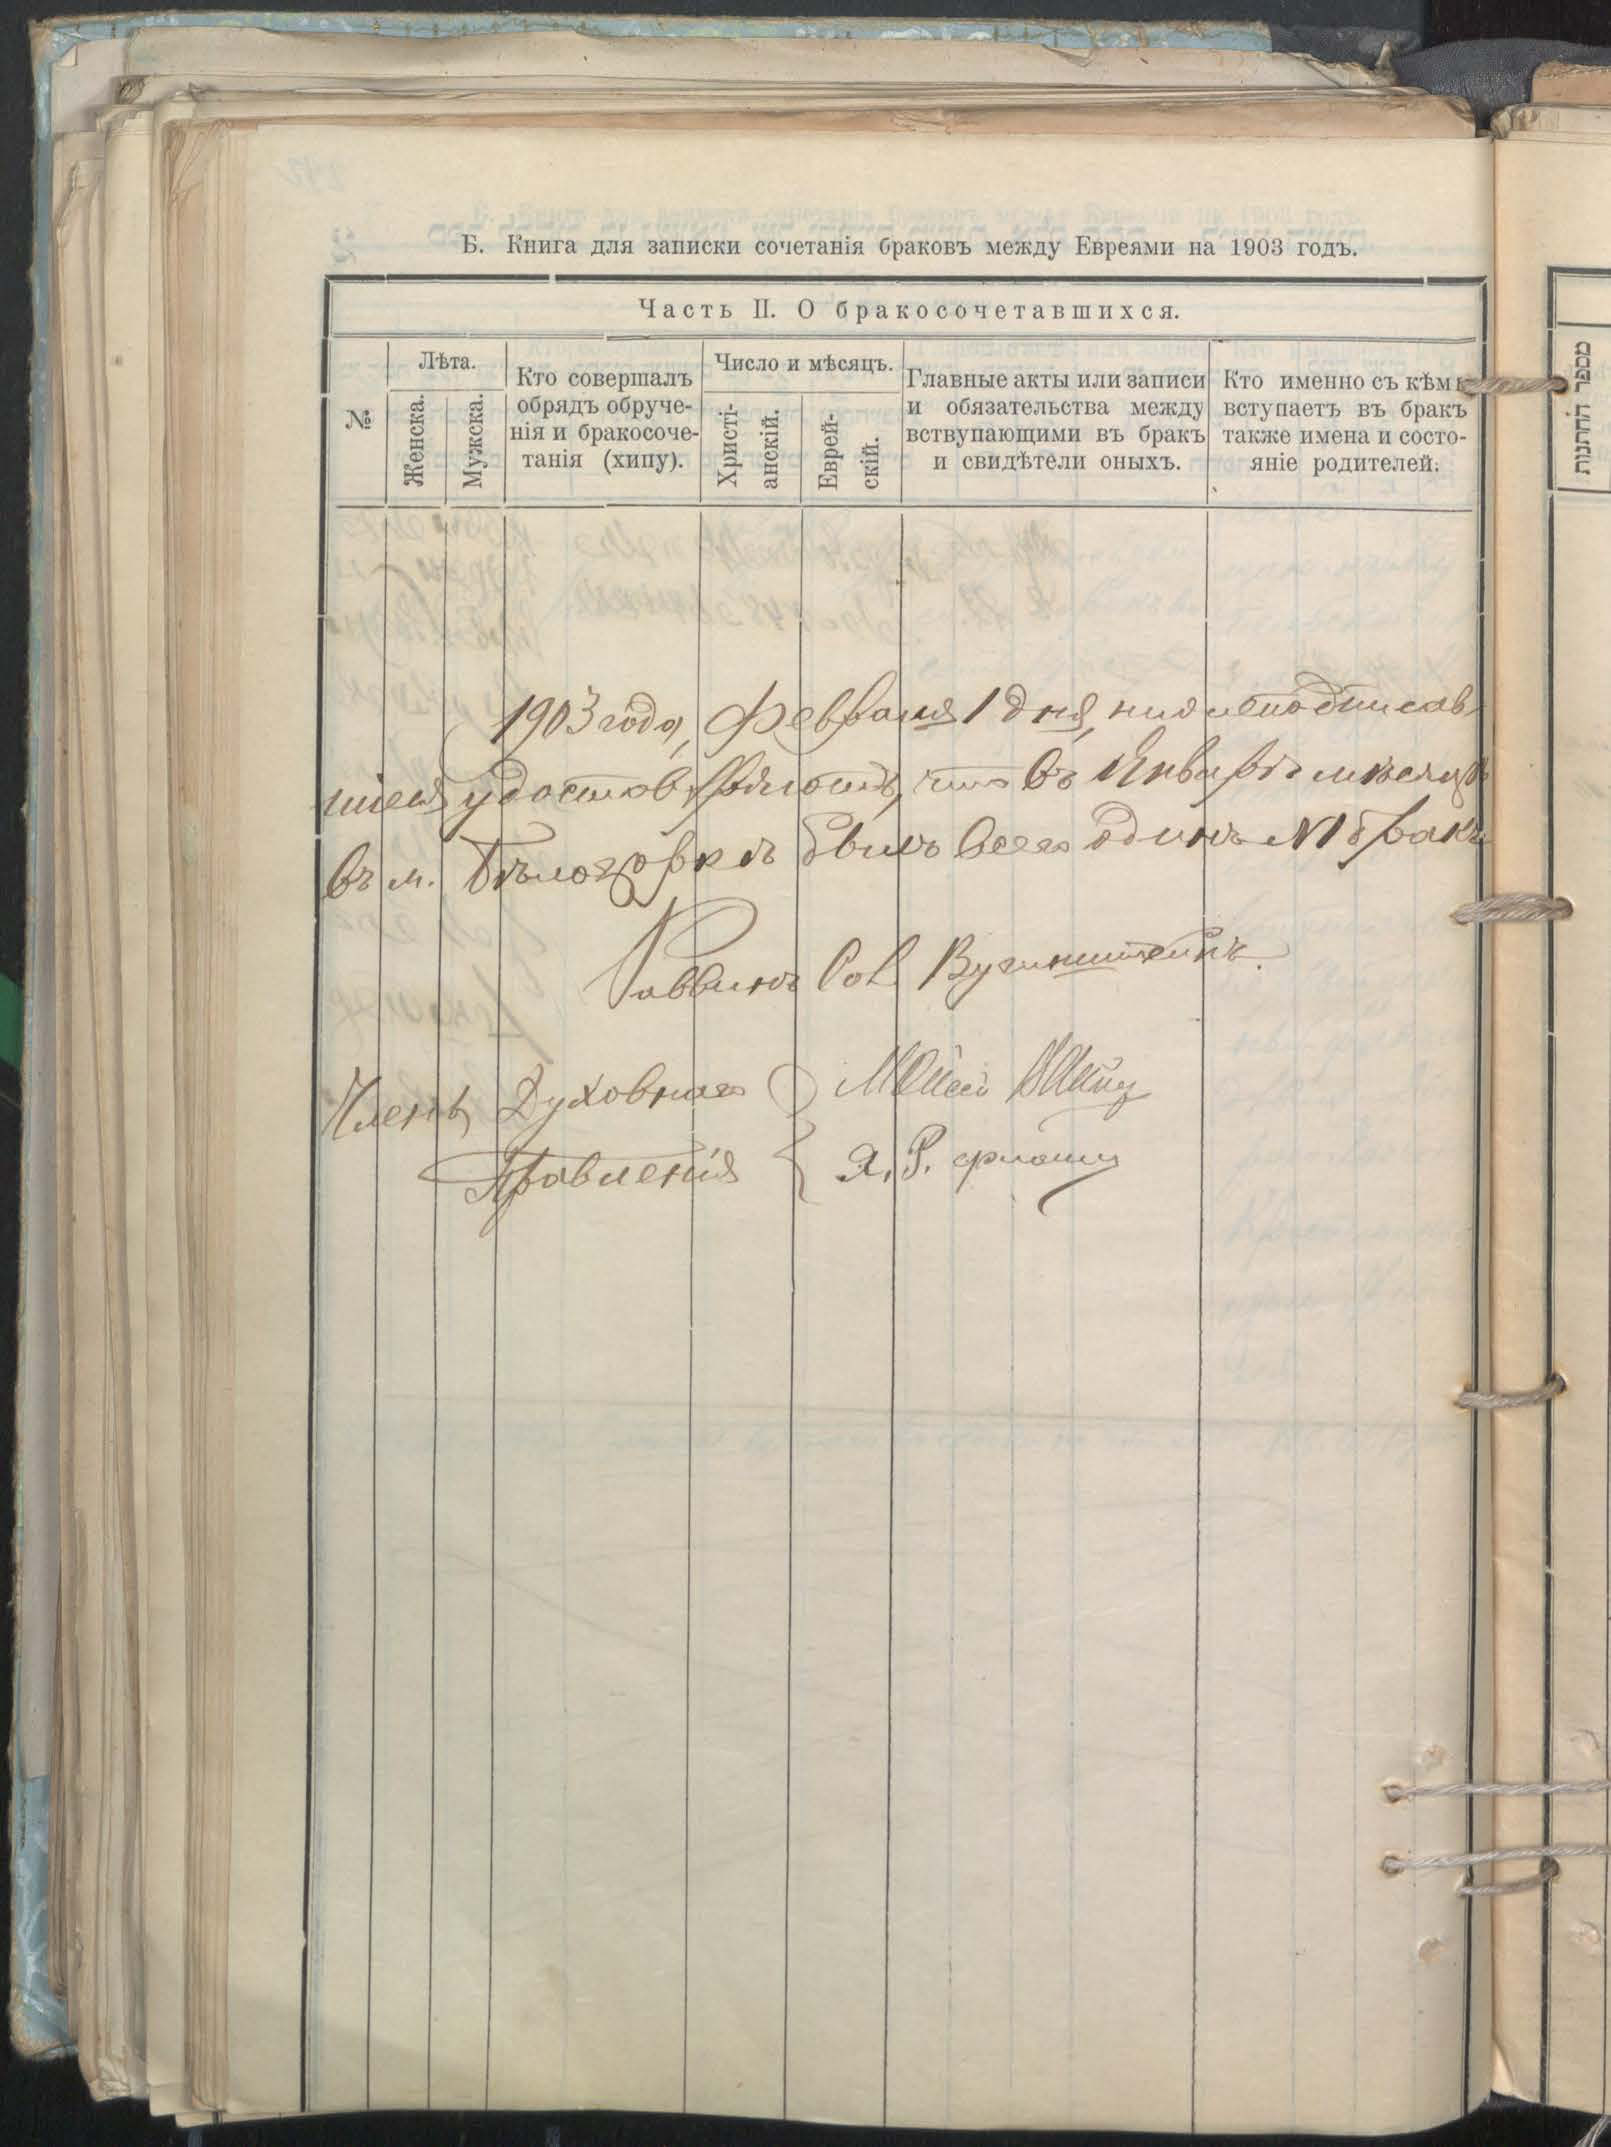 Б. Книга для записки сочетанія браковъ между Евреями на 1903 годъ.
Часть II. О бракосочетавшихся.
№
Лѣта.
Женска.
Мужска.
Кто совершалъ
обрядъ обруче-
нія и бракосоче-
танія (хипу).
Число и мѣсяцъ.
Христі-
анскій.
Еврей-
скій.
Главные акты или записи
и обязательства между
вступающими въ бракъ
и свидѣтели оныхъ.
Кто именно съ кѣмъ
вступаетъ въ бракъ
также имена и состо-
яніе родителей.
1903 года, Февраля 1 дня, нижеподписав-
шіеся удостовѣряютъ, что въ Январѣ мѣсяцѣ
въ м. Бѣлозоркѣ былъ всего одинъ №1 бракъ
Раввинъ
Члены Духовнаго
Правленія
Я. Р.
מספר החתנות